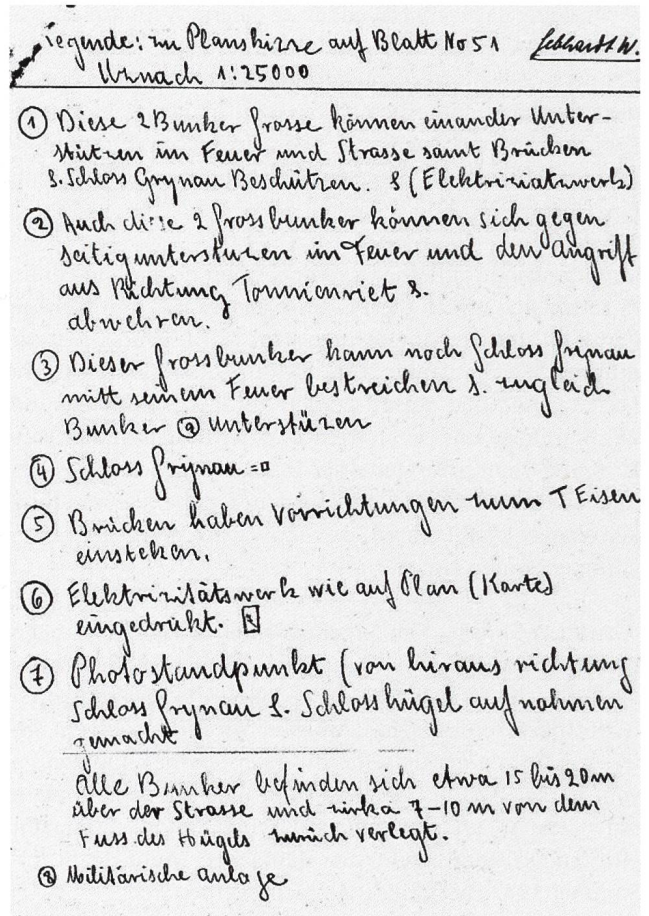 Legende: zu Planskizze auf Blatt No 51 Gebhardt W.
Uznach 1:25000
① Diese 2 Bunker Grosse können einander Unter-
stützen im Feuer und Strasse samt Brücken
&. Schloss Grynau Beschützen. & (Elektriziatzwerk)
② Auch diese 2 Grossbunker können sich gegen
seitig unterstuzen im Feuer und den Angriff
aus Richtung &.
abwehren.
③ Dieser Grossbunker kann noch Schloss Grinau
mitt seinem Feuer bestreichen &. zugleich
Bunker unterstüzen
④ Schloss Grynau =
⑤ Brücken haben Vorrichtungen zum T Eisen
einsteken.
⑥ Elektrizitätswerk wie auf Plan (Karte)
eingedrükt.
⑦ Photostandpunkt (von hiraus richtung
Schloss Grynau &. Schlosshügel aufnahmen
gemacht
Alle Bunker befinden sich etwa 15 bis 20 m
über der Strasse und zirka 7-10 m von dem
Fuss des Hügels zurück verlegt.
⑧ Militärische anlage